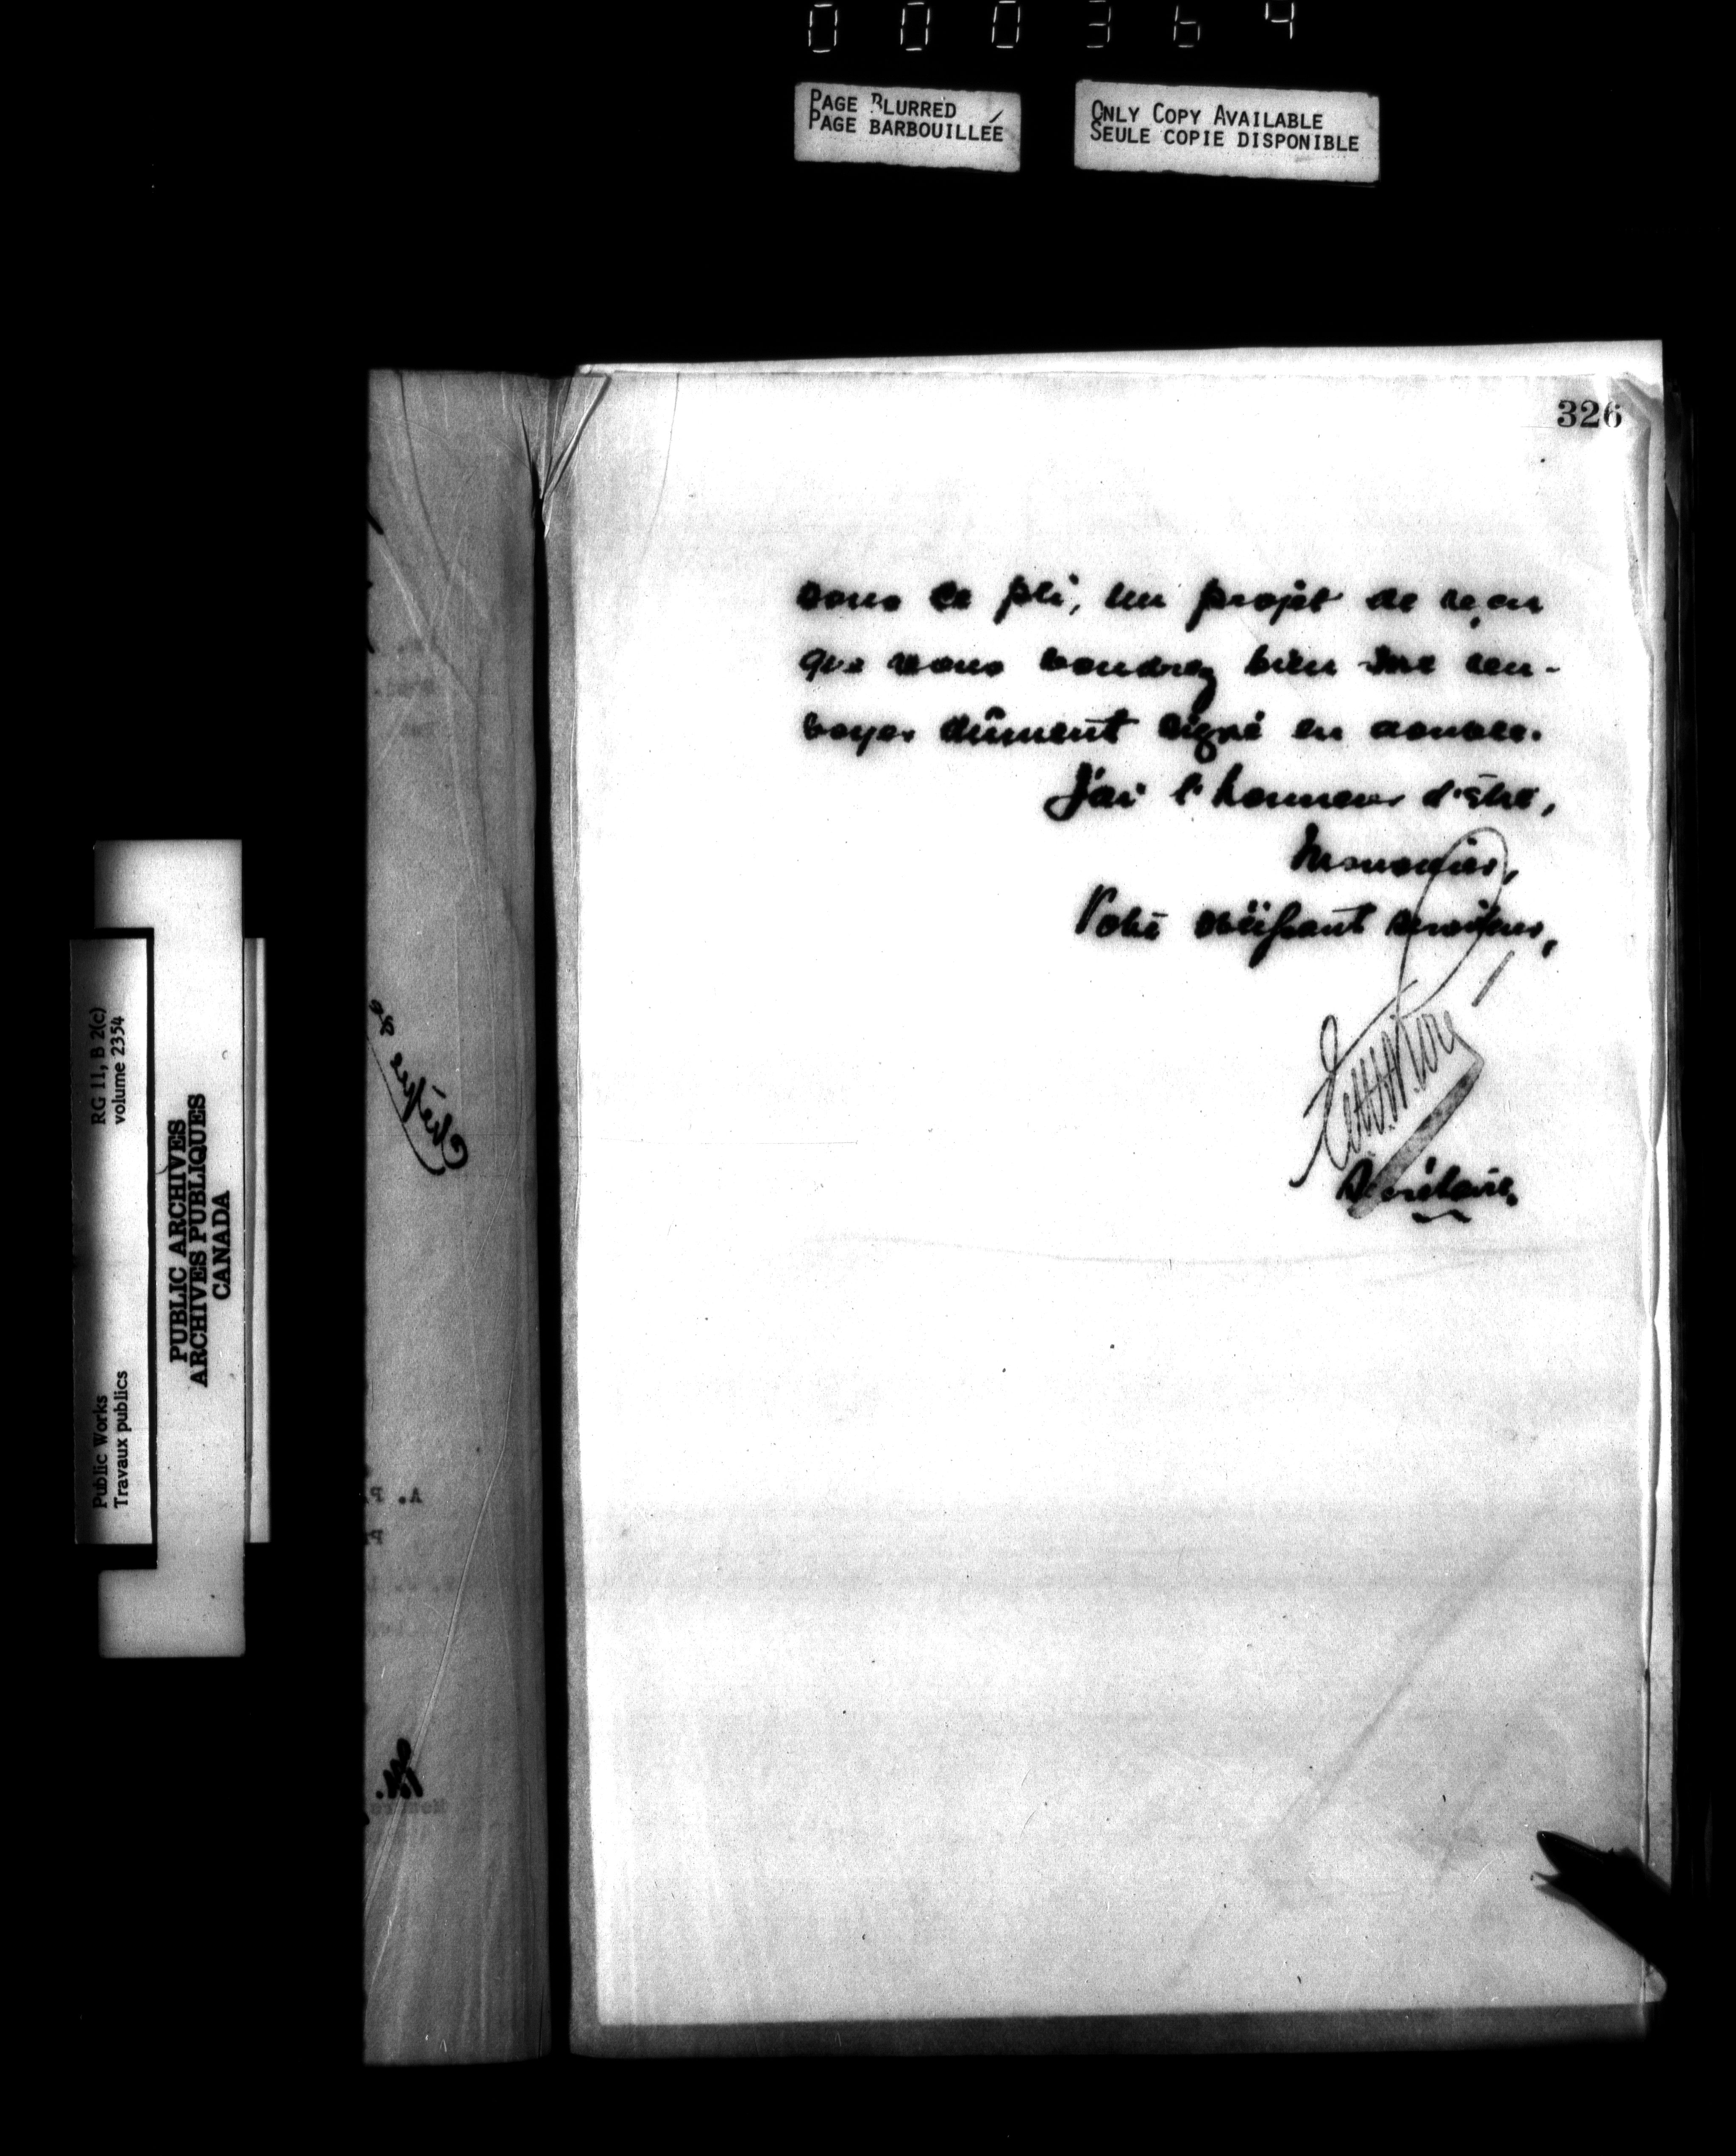 000364
PAGE BLURRED
PAGE BARBOUILLÉE
ONLY COPY AVAILABLE
SEULE COPIE DISPONIBLE
326
sous ce pli, un projet de reçu
que vous voudrez bien me ren-
voyer dûment signé en double.
J'ai l'honneur d'être,
Monsieur,
Votre obéissant serviteur,
Secrétaire.
RG 11, B 2(c)
volume 2354
Public Works
Travaux publics
PUBLIC ARCHIVES
ARCHIVES PUBLIQUES
CANADA